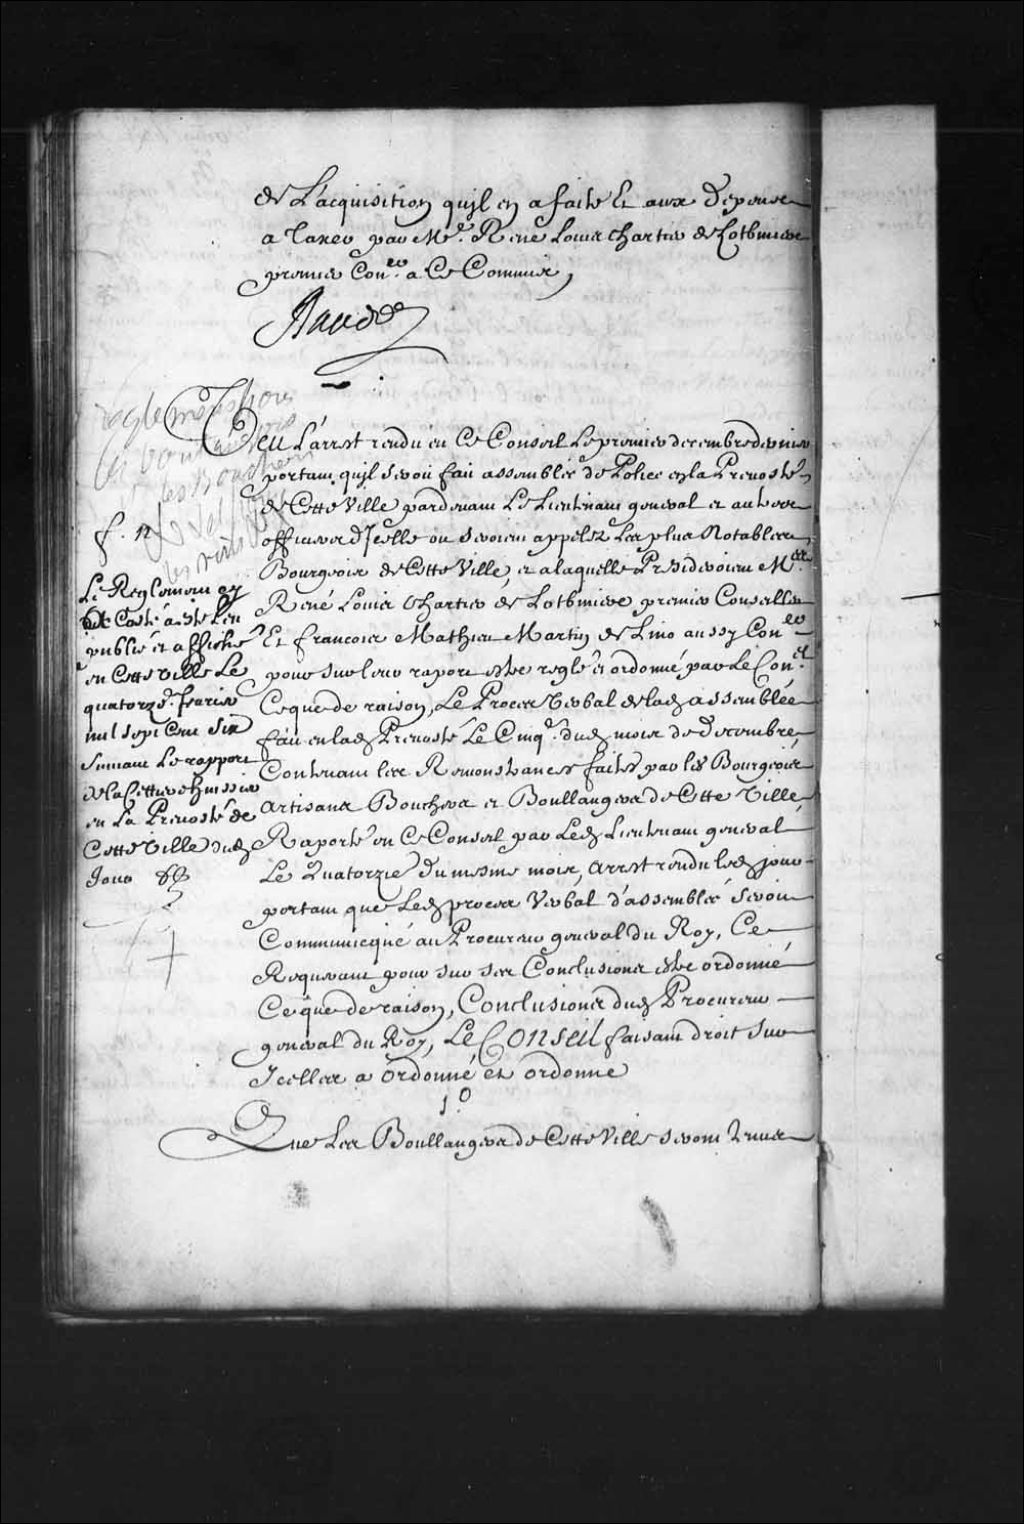 de L'acquisition qu'jl en a faite Et aux Depens
a Taxer par Me. René Louis Chartier de Lotbiniere
premier Coner. a Ce Commis,
Raudot
Reglement pour
les boulangers
les Bouchers
f. n
Veu L'arrest rendu en Ce Conseil Le premier decembre dernier
portant qu'jl seroit fait assemblée de Police en la Prevosté
de Cette Ville pardevant Le Lieutenant general et autres
officiers d'Icelle ou seroient appelez Les plus Notables
Bourgeois de Cette Ville, et a laquelle Presideroient Mes.
René Louis Chartier de Lotbiniere premier Conseiller
Et francois Mathieu Martin de Lino aussy Coner
pour sur leur raport estre reglé et ordonné par Le Conel.
Ce que de raison, Le Procez Verbal de lad assemblée
fait en lad Prevosté Le Cinqe. dud mois de Decembre
Contenant les Remonstrances faites par les Bourgeois
Artisans Bouchers et Boullangers de Cette Ville,
Raporté en Ce Conseil par Led Lieutenant general
Le Quatorzie du mesme mois, Arrest rendu led jour
portant que Led procez Verbal d'assemblée seroit
Communicqué au Procureur general du Roy, Ce
Requerant pour sur ses Conclusions estre ordonné
Ce que de raison, Conclusions dud Procureur
general du Roy, Le Conseil faisant droit sur
Icelles a ordonné et ordonne
1o.
Que Les Boullangers de Cette Ville seront tenus
Le Reglement cy
de Costé a esté leu
publié et affiché
en Cette Ville Le
quatorze. fevrier
mil sept Cent six
suivant Le rapport
de la Cettiere huissier
en La Prevosté de
Cette Ville dud
Jour